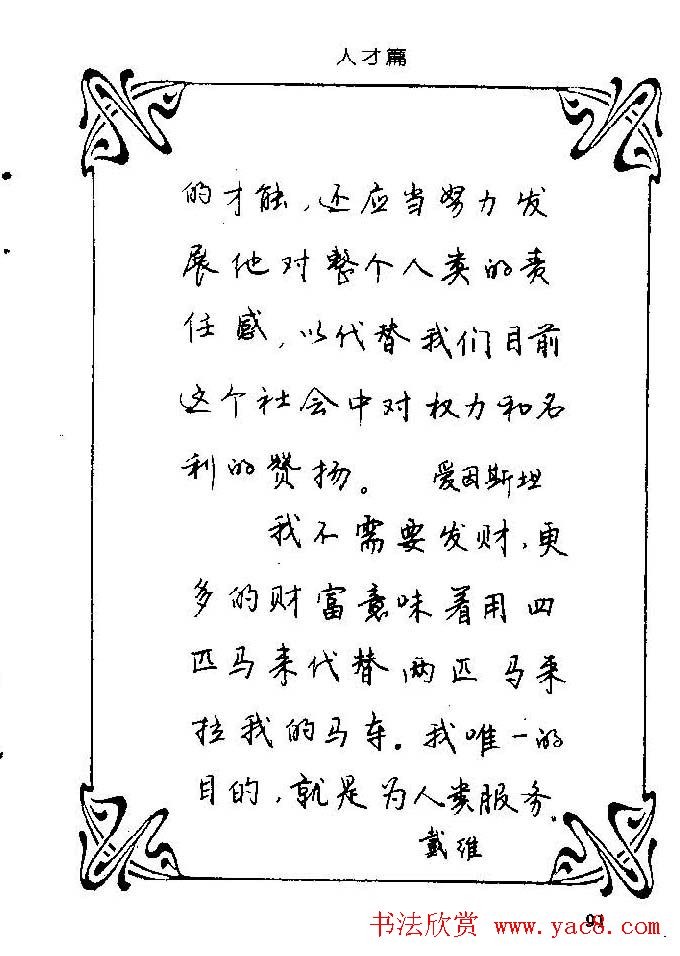 人才篇
的才能，还应当努力发
展他对整个人类的责
任感，以代替我们目前
这个社会中对权力和名
利的赞扬。 爱因斯坦
我不需要发财，更
多的财富意味着用四
匹马来代替两匹马来
拉我的马车。我唯一的
目的，就是为人类服务。
戴维
书法欣赏 www.yac8.com